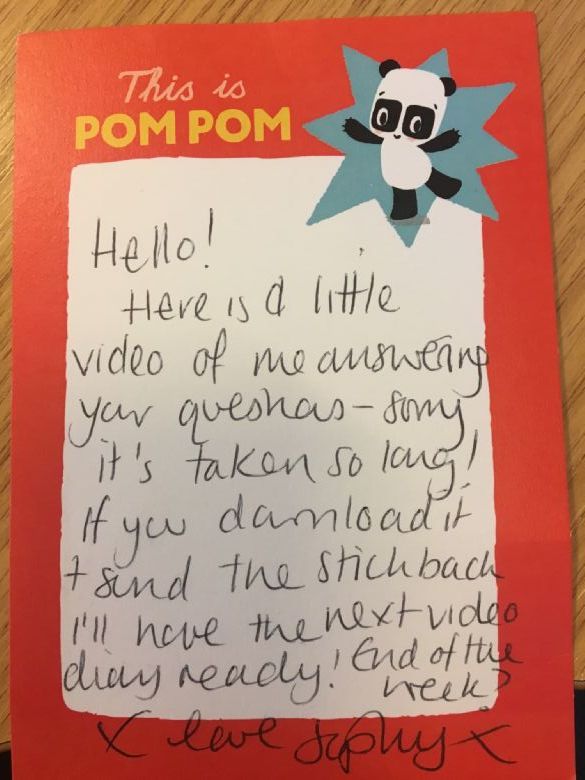 This is
POM POM
Hello!
Here is a little
video of me answering
your questions - sorry
it's taken so long!
If you download it
+ send the stick back
I'll have the next video
diary ready! End of the
week?
x love Sophy x